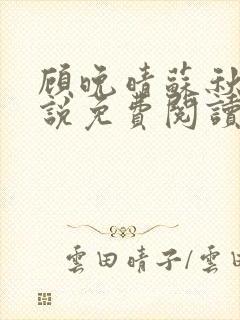 顾晚晴蘇秋
說免費閱讀
雲田晴子/雲田